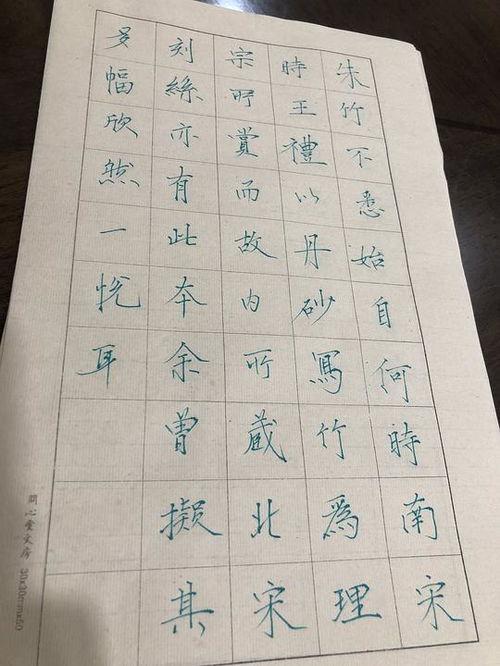 朱竹不悉始自何時南宋
時王禮以丹砂寫竹爲理
宗所賞而故内所藏北宋
刻絲亦有此本余曾擬其
幅欣然一悦耳
心堂文房 30x30mmx50